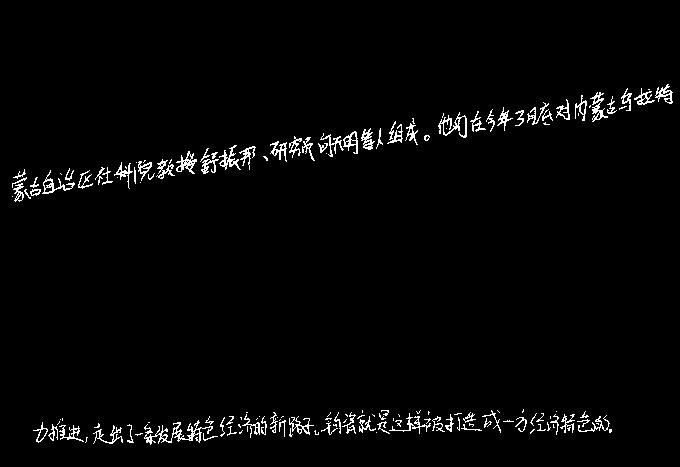 蒙古自治区社科院教授舒振邦、研究员向天明等人组成。他们在今年3月底对内蒙古乌拉特
力推进,走出了一条发展特色经济的新路子。钧瓷就是这样被打造成一方经济特色的。